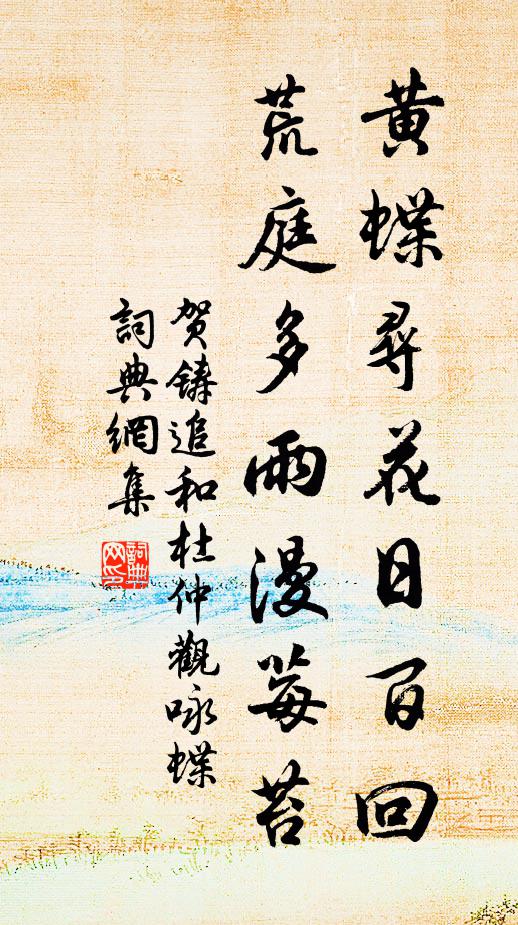 黃蝶尋花日百回
荒庭多雨漫莓苔
贺鑄追和杜仲觀咏蝶
詞典網集
詞典
网印